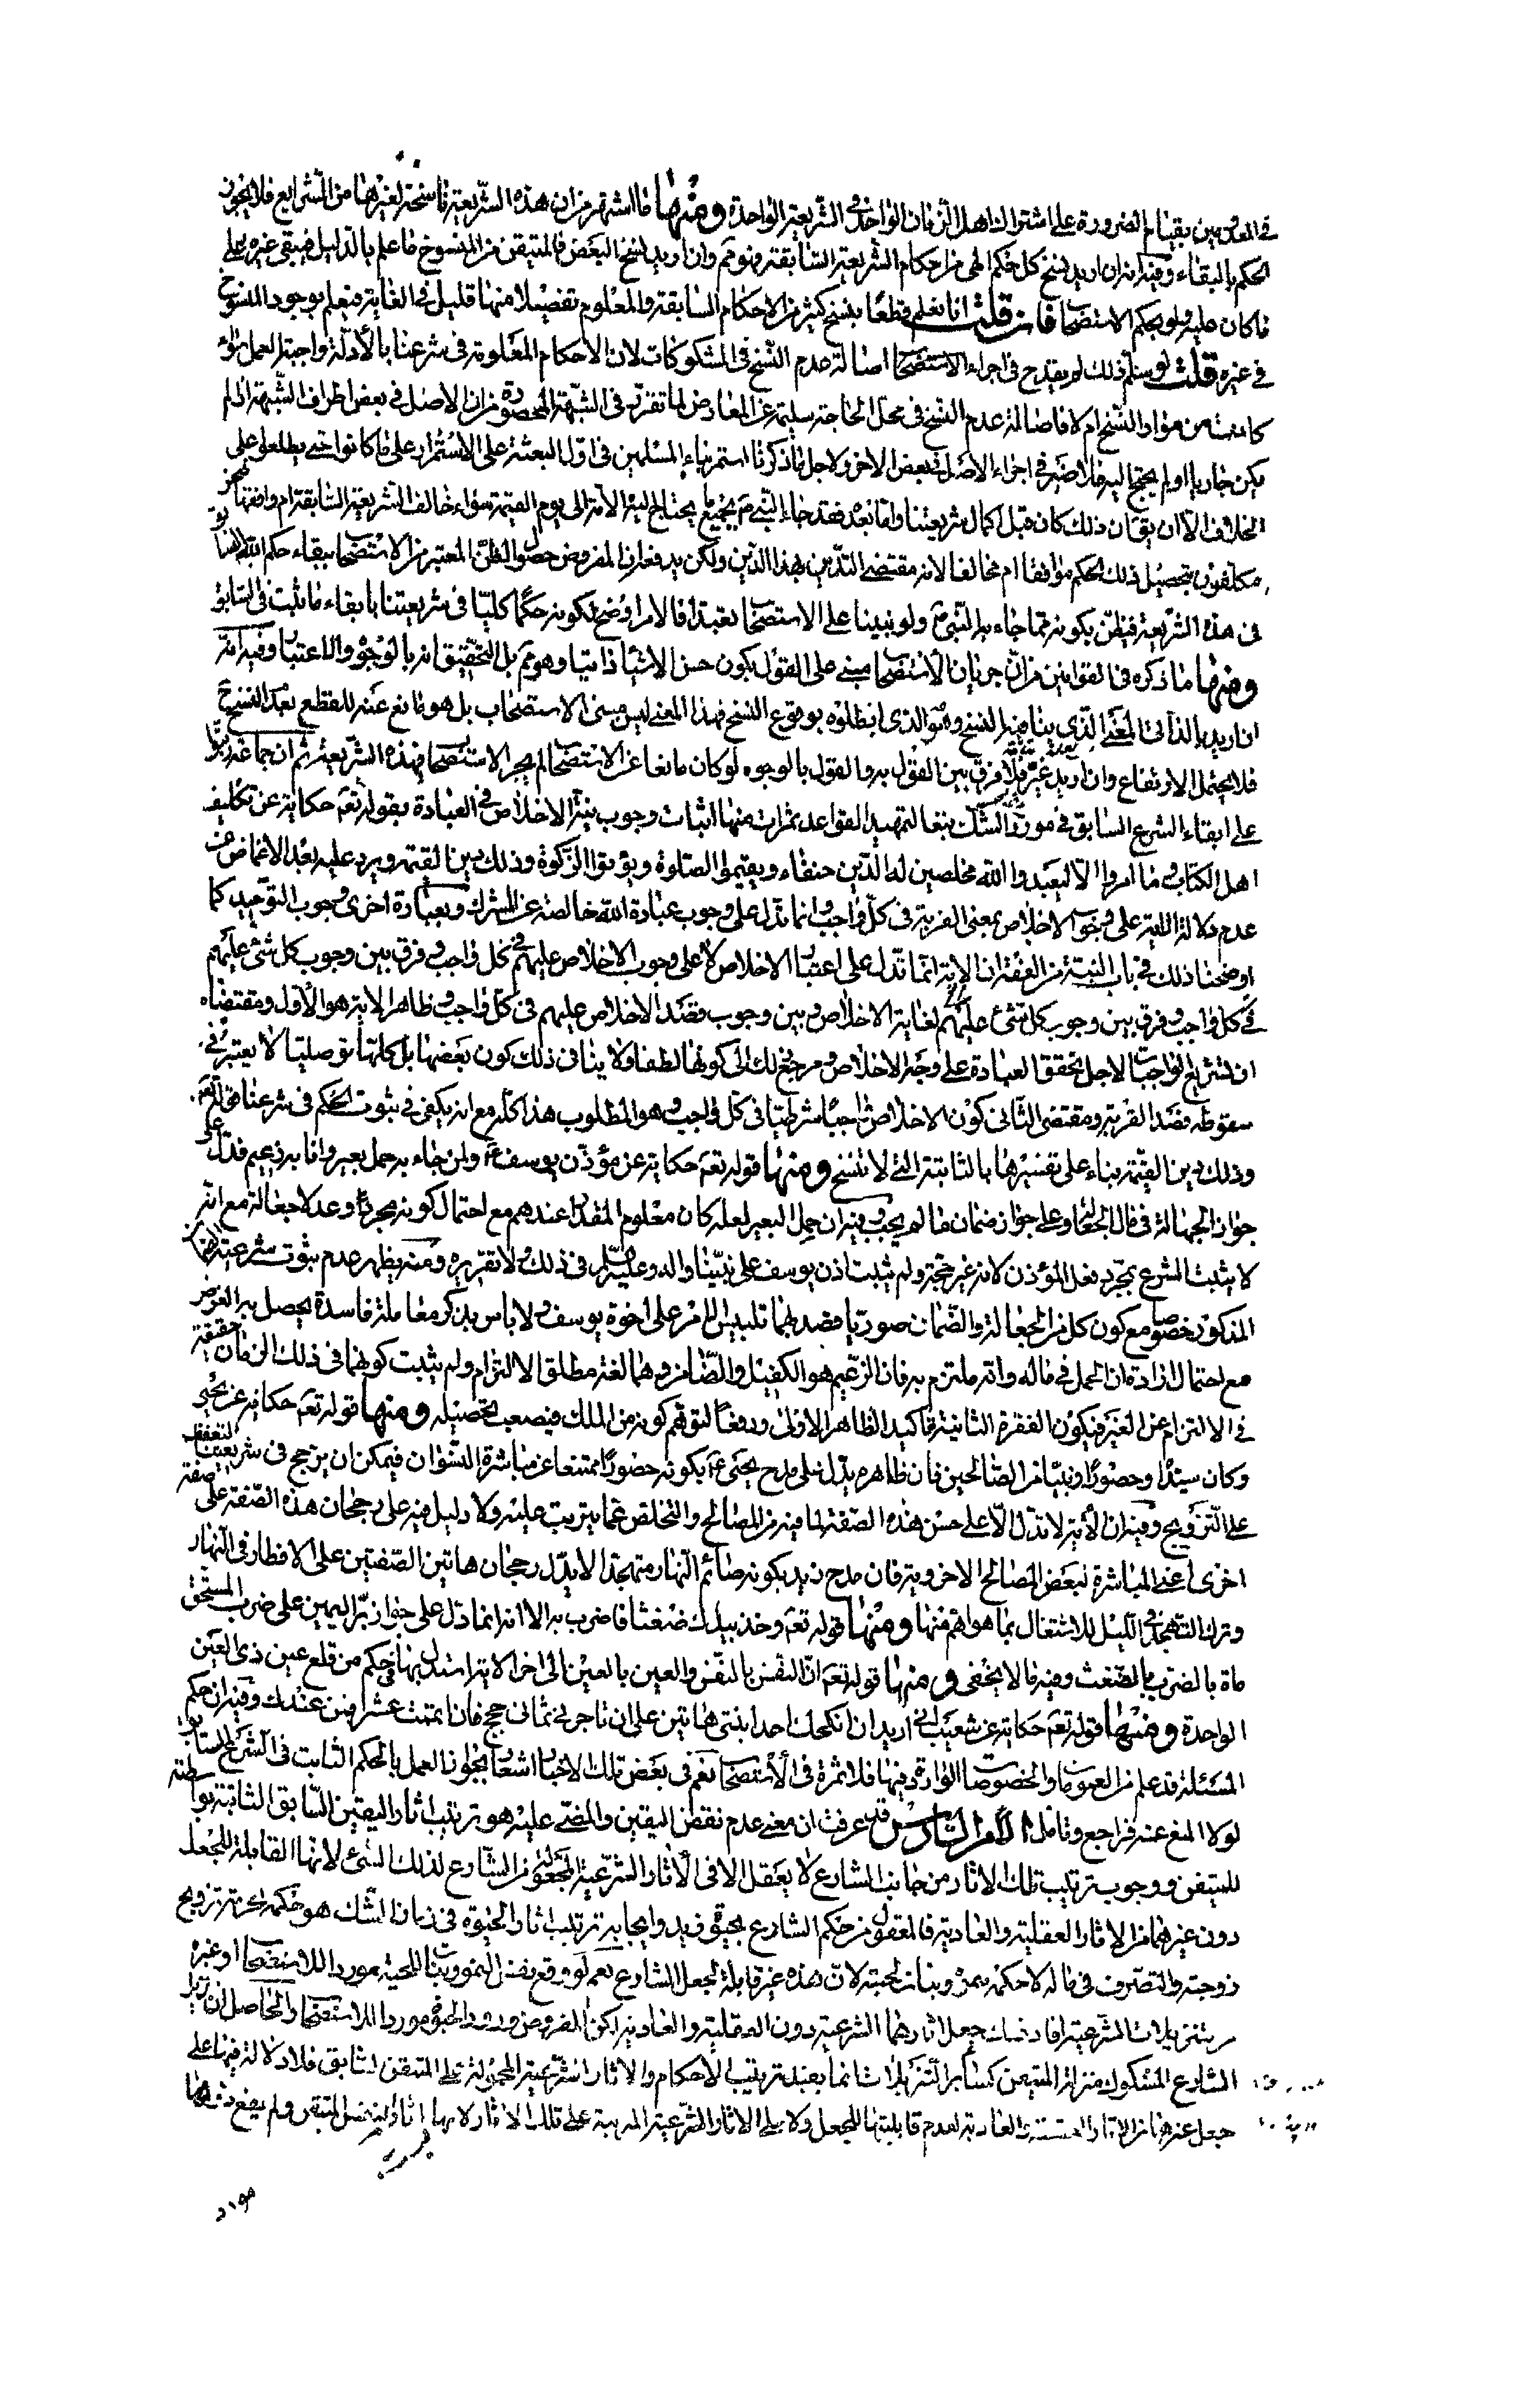 في المعدومين بقيام الضرورة على اشتراك اهل الزمان الواحد في الشريعة الواحدة ومنها ما اشتهر من ان هذه الشريعة ناسخة لغيرها من الشرايع فلا يجوز
الحكم بالبقاء وفيه انه ان اريد نسخ كل حكم الهي من احكام الشريعة السابقة فهو مم وان اريد نسخ البعض فالمتيقن من المنسوخ ما علم بالدليل فيبقى غيره على
ما كان عليه ولو بحكم الاستصحاب فان قلت انا نعلم قطعا بنسخ كثير من الاحكام السابقة والمعلوم تفصيلا منها قليل في الغاية فيعلم بوجود المنسوخ
في غيره قلت لو سلم ذلك لم يقدح في اجراء الاستصحاب اصالة عدم النسخ في المشكوكات لان الاحكام المعلومة في شرعنا بالأدلة واجبة العمل سواء
كانت من موارد النسخ ام لا فاصالة عدم النسخ في محل الحاجة سليمة عن المعارض لما تقرر في الشبهة المحصورة من ان الاصل في بعض اطراف الشبهة اذا لم
يكن جاريا او لم يحتج اليه فلا ضير في اجراء الاصل في بعض الاخر ولاجل ما ذكرنا استمر بناء المسلمين في اول البعثة على الاستمرار على ما كانوا حتى يطلعوا على
الخلاف الا ان يقال ان ذلك كان قبل اكمال شريعتنا واما بعده فقد جاء النبي ص بجميع ما يحتاج اليه الامة الى يوم القيمة سواء خالف الشريعة السابقة ام وافقها فنحن
مكلفون بتحصيل ذلك الحكم موافقا ام مخالفا لانه مقتضى التدين بهذا الدين ولكن يدفعه ان المفروض حصول الظن المعتبر من الاستصحاب ببقاء حكم الله السابق
في هذه الشريعة فيظن بكونه مما جاء به النبي ص ولو بنينا على الاستصحاب تعبدا فالامر اوضح لكونه حكما كليا في شريعتنا بابقاء ما ثبت في السابق
ومنها ما ذكره في القوانين من ان جريان الاستصحاب مبني على القول بكون حسن الاشياء ذاتيا وهو مم بل التحقيق انه بالوجوه والاعتبارات وفيه انه
ان اريد بالذاتي المعنى الذي ينافيه النسخ وهو الذي ابطلوه بوقوع النسخ فهذا المعنى ليس مبنى الاستصحاب بل هو مانع عنه للقطع بعدم النسخ ح
فلا يحتمل الارتفاع وان اريد غيره فلا فرق بين القول به والقول بالوجوه لو كان مانعا عن الاستصحاب لم يجر الاستصحاب في هذه الشريعة ثم ان جماعة رتبوا
على ابقاء الشرع السابق في مورد الشك تبعا لتمهيد القواعد ثمرات منها اثبات وجوب نية الاخلاص في العبادة بقوله تعم حكاية عن تكليف
اهل الكتاب وما امروا الا ليعبدوا الله مخلصين له الدين حنفاء ويقيموا الصلوة ويؤتوا الزكوة وذلك دين القيمة ويرد عليه بعد الاغماض عن
عدم دلالة الاية على وجوب الاخلاص بمعنى القربة في كل واجب وانما تدل على وجوب عبادة الله خالصة عن الشرك وبعبارة اخرى وجوب التوحيد كما
اوضحنا ذلك في باب النية من الفقه ان الاية انما تدل على اعتبار الاخلاص لا على وجوب الاخلاص عليهم في كل واجب وفرق بين وجوب كل شئ عليهم
في كل واجب وفرق بين وجوب كل شئ عليهم لغاية الاخلاص وبين وجوب قصد الاخلاص عليهم في كل واجب وظاهر الاية هو الاول ومقتضاه
ان تشريع الواجبات لاجل تحقق العبادة على وجه الاخلاص ومرجع ذلك الى كونها لطفا ولا ينافي ذلك كون بعضها بل كلها توصليا لا يعتبر في
سقوطه قصد القربة ومقتضى الثاني كون الاخلاص واجبا شرطيا في كل واجب وهو المطلوب هذا كله مع انه يكفي في ثبوت الحكم في شرعنا قوله تعم
وذلك دين القيمة بناء على تفسيرها بالثابتة التي لا تنسخ ومنها قوله تعم حكاية عن مؤذن يوسف ع ولمن جاء به حمل بعير وانا به زعيم فدل على
جواز الجهالة في مال الجعالة وعلى جواز ضمان ما لم يجب وفيه ان حمل البعير لعله كان معلوم المقدار عندهم مع احتمال كونه مجرد وعد لا جعالة مع انه
لا يثبت الشرع بمجرد فعل المؤذن لانه غير حجة ولم يثبت اذن يوسف على نبينا واله وعليه السلام في ذلك ولا تقريره ومنه يظهر عدم ثبوت شرعية الضمان
المذكور خصوصا مع كون كل من الجعالة والضمان صوريا قصد بهما تلبيس الامر على اخوة يوسف ولا باس بذكر معاملة فاسدة يحصل به الغرض
مع احتمال ارادة ان الحمل في ماله وانه ملتزم به فان الزعيم هو الكفيل والضامن وهما لغة مطلق الالتزام ولم يثبت كونهما في ذلك الزمان حقيقة
في الالتزام عن الغير فيكون الفقرة الثانية تاكيدا لظاهر الاولى ودفعا لتوهم كونه من الملك فيصعب تحصيله ومنها قوله تعم حكاية عن يحيى
وكان سيدا وحصورا ونبيا من الصالحين فان ظاهره يدل على مدح يحيى ع بكونه حصورا ممتنعا عن مباشرة النسوان فيمكن ان يرجح في شريعتنا التعفف
على التزويج وفيه ان الاية لا تدل الا على حسن هذه الصفة لما فيه من المصالح والتخلص عما يترتب عليه ولا دليل فيه على رجحان هذه الصفة على صفة
اخرى اعني المباشرة لبعض المصالح الاخروية فان مدح زيد بكونه صائم النهار متهجدا لا يدل رجحان هاتين الصفتين على الافطار في النهار
وترك التهجد في الليل للاشتغال بما هو اهم منها ومنها قوله تعم وخذ بيدك ضغثا فاضرب به الا انه انما دل على جواز بر اليمين على ضرب المستحق
ماة بالضرب بالضغث وفيه ما لا يخفى ومنها قوله تعم ان النفس بالنفس والعين بالعين الى اخر الاية استدل بها في حكم من قلع عين ذي العين
الواحدة ومنها قوله تعم حكاية عن شعيب اني اريد ان انكحك احدى ابنتي هاتين على ان تاجرني ثماني حجج فان اتممت عشرا فمن عندك وفيه ان حكم
المسئلة قد علم من العمومات والخصوصات الواردة فيها فلا ثمرة في الاستصحاب نعم في بعض تلك الاخبار اشعار بجواز العمل بالحكم الثابت في الشرع السابق
لولا المنع عنه فراجع وتامل الامر السادس قد عرفت ان معنى عدم نقض اليقين والمضي عليه هو ترتيب اثار اليقين السابق الثابتة بواسطته
للمتيقن ووجوب ترتيب تلك الاثار من جانب الشارع لا يعقل الا في الاثار الشرعية المجعولة من الشارع لذلك الشئ لانها القابلة للجعل
دون غيرها من الاثار العقلية والعادية فالمعقول من حكم الشارع بحيوة زيد وايجابه ترتيب اثار الحيوة في زمان الشك هو حكمه بحرمة تزويج
زوجته والتصرف في ماله لا حكمه بنموه ونبات لحيته لان هذه غير قابلة لجعل الشارع نعم لو وقع نفس النمو ونبات اللحية موردا للاستصحاب او غيره
من التنزيلات الشرعية افاد ذلك جعل اثارهما الشرعية دون العقلية والعادية لكن المفروض ورود الحيوة موردا للاستصحاب والحاصل ان تنزيل
الشارع المشكوك منزلة المتيقن كسائر التنزيلات انما يفيد ترتيب الاحكام والاثار الشرعية المحمولة على المتيقن السابق فلا دلالة فيها على
جعل غيرها من الاثار العقلية والعادية لعدم قابليتها للجعل ولا على الاثار الشرعية المترتبة على تلك الاثار لانها ليست اثار لنفس المتيقن ولم يقع ذلك